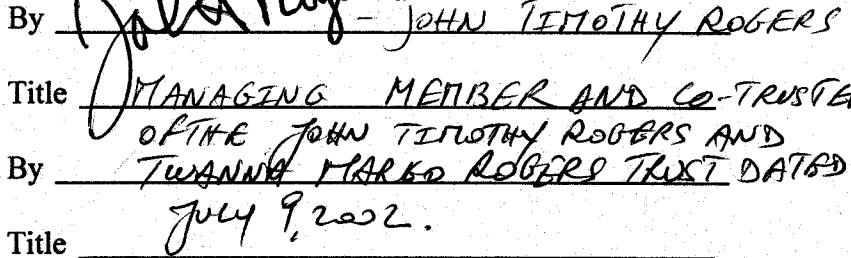 By John T Rogers - JOHN TIMOTHY ROGERS
Title MANAGING MEMBER AND CO-TRUSTE
OF THE JOHN TIMOTHY ROGERS AND
By TWANNA MARGO ROGERS TRUST DATED
JULY 9, 2002.
Title